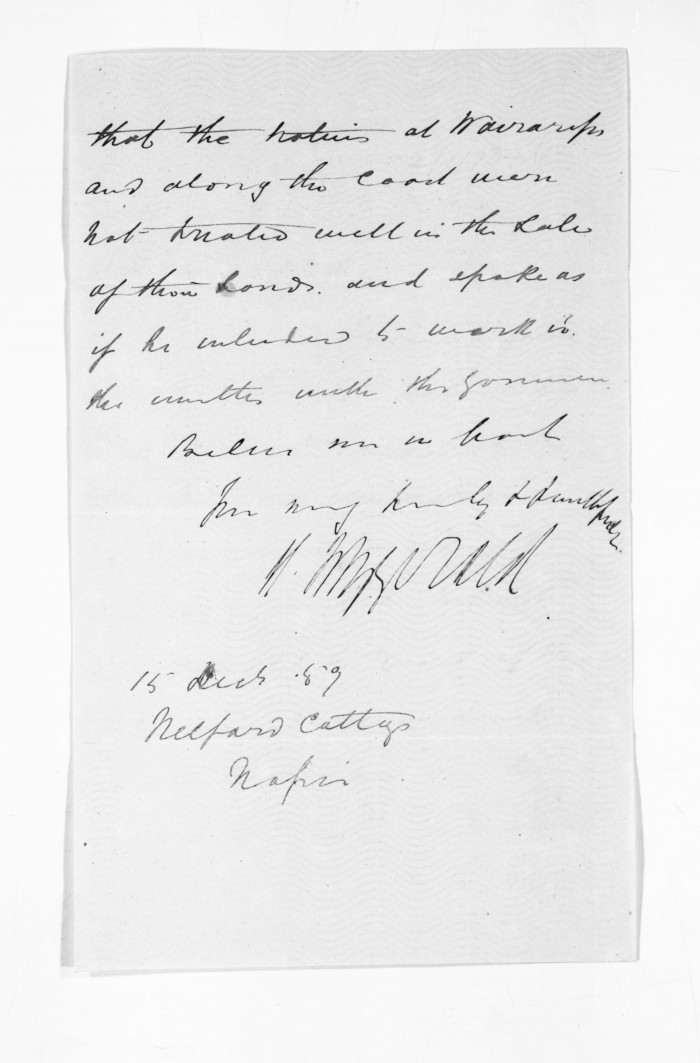 that the natives at Wairarapa
and along the Coast were
not treated well in the Sale
of their Lands. and spoke as
if he intended to work in
the matter with the Governor
Believe me in haste
Yrs very truly & faithfully
H. Fitzgerald
15 Decb. 59
Cottage
Napier